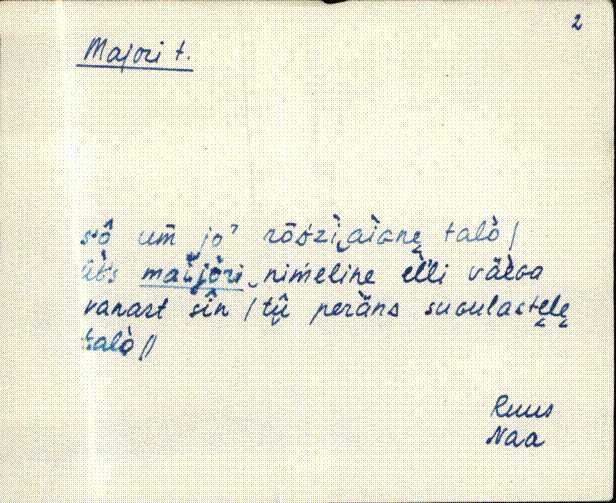 2
Majori t.
sjô um̄ jo᾽ rōśzì‿aìɢne̬ talò /
üt̀s maìjòri‿nimeline èlli väèɢa
vanast sîn / tŷ peräns suɢulastele̬
talò //
Ruus
Naa